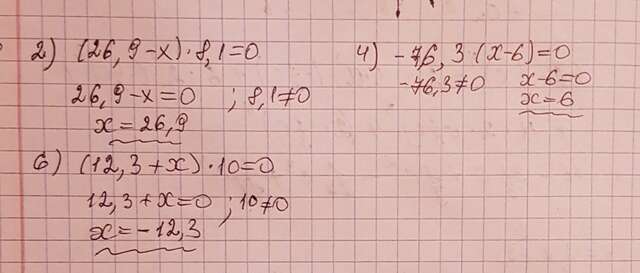 2) (26,9-x)·8,1=0
26,9-x=0 ; 8,1≠0
x=26,9
4) -76,3·(x-6)=0
-76,3≠0 x-6=0
x=6
6) (12,3+x)·10=0
12,3+x=0 ; 10≠0
x=-12,3